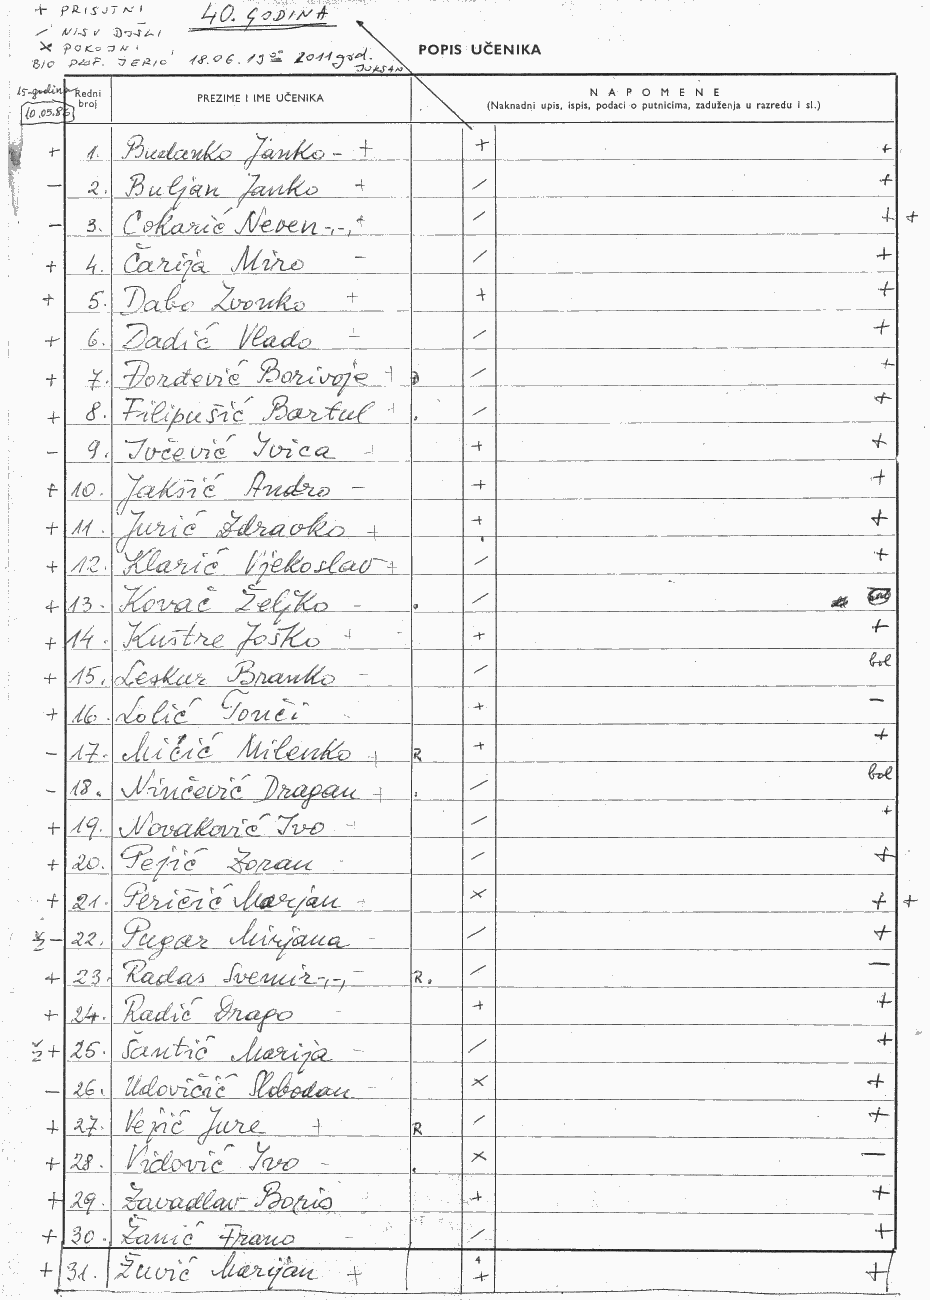 + PRISUTNI
/ NISU DOŠLI
× POKOJNI
BIO PROF. JERIĆ
40. GODINA
18.06.19°° 2011 god.
POPIS UČENIKA
15-godina
10.05.86
Redni broj
PREZIME I IME UČENIKA
NAPOMENE
(Naknadni upis, ispis, podaci o putnicima, zaduženja u razredu i sl.)
+ 1. Budanko Janko - + + +
- 2. Buljan Janko + / +
- 3. Cokarić Neven -,-,+ / + +
+ 4. Čarija Miro - / +
+ 5. Dabo Zvonko + + +
+ 6. Dadić Vlado - / +
+ 7. Đorđević Borivoje + / +
+ 8. Filipušić Bartul + . / +
- 9. Ivčević Ivica + + +
+ 10. Jakšić Andro - + +
+ 11. Jurić Zdravko + + +
+ 12. Klarić Vjekoslav + / +
+ 13. Kovač Željko - . /
+ 14. Kuštre Joško + + +
+ 15. Leskur Branko - / bol
+ 16. Lolić Tonči - + -
- 17. Mičić Milenko + R + +
- 18. Ninčević Dragan + . / bol
+ 19. Novaković Ivo - / +
+ 20. Pejić Zoran - / +
+ 21. Peričić Marjan + × + +
- 22. Pugar Mirjana - / +
+ 23. Radas Svemir -,-, - R. / -
+ 24. Radić Drago - + +
+ 25. Šantić Marija - / +
- 26. Udovičić Slobodan - × +
+ 27. Vejić Jure + R / +
+ 28. Vidović Ivo - . × -
+ 29. Zavadlav Boris + +
+ 30. Žanić Frano - / +
+ 31. Žuvić Marijan + + +